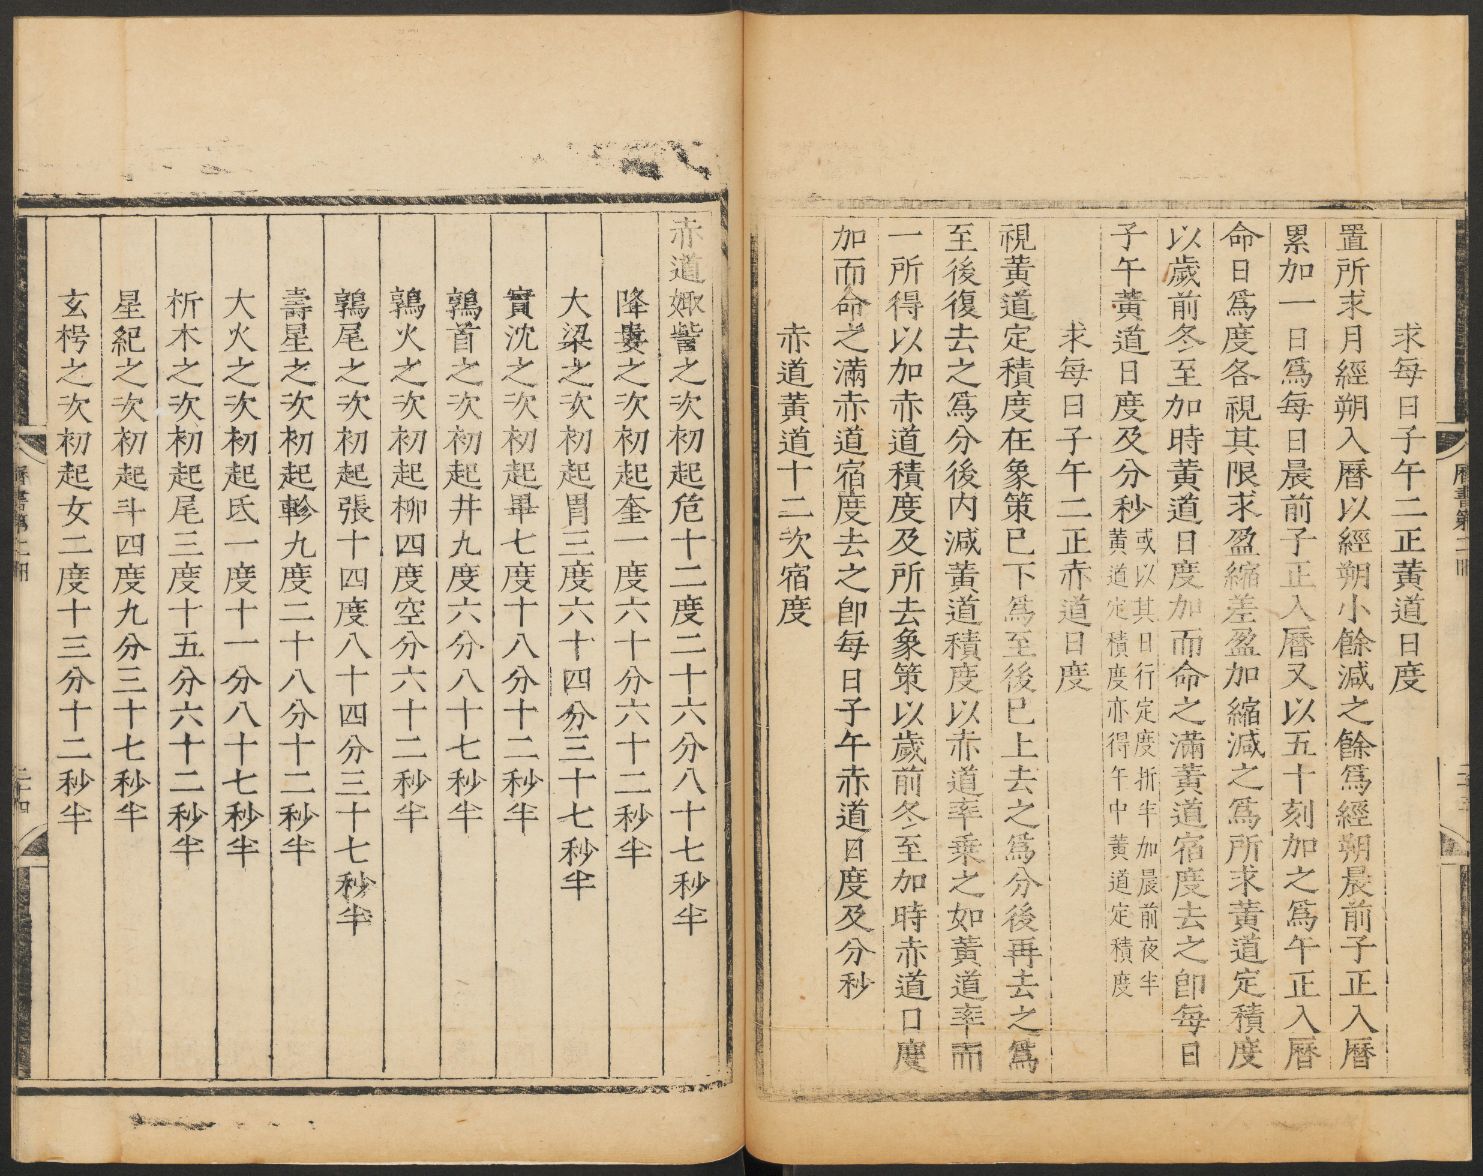 求每日子午二正黃道日度
置所求月經朔入曆以經朔小餘減之餘爲經朔晨前子正入曆
累加一日爲每日晨前子正入曆又以五十刻加之爲午正入曆
命日爲度各視其限求盈縮差盈加縮減之爲所求黃道定積度
以歲前冬至加時黃道日度加而命之滿黃道宿度去之卽每日
子午黃道日度及分秒或以其日行定度折半加晨前夜半
黃道定積度亦得午中黃道定積度
求每日子午二正赤道日度
視黃道定積度在象策已下爲至後已上去之爲分後再去之爲
至後復去之爲分後內減黃道積度以赤道率乗之如黃道率而
一所得以加赤道積度及所去象策以歲前冬至加時赤道日度
加而命之滿赤道宿度去之卽每日子午赤道日度及分秒
赤道黃道十二次宿度
曆書第二冊
赤道娵訾之次初起危十二度二十六分八十七秒半
降婁之次初起奎一度六十分六十二秒半
大梁之次初起胃三度六十四分三十七秒半
實沈之次初起畢七度十八分十二秒半
鶉首之次初起井九度六分八十七秒半
鶉火之次初起柳四度空分六十二秒半
鶉尾之次初起張十四度八十四分三十七秒半
壽星之次初起軫九度二十八分十二秒半
大火之次初起氐一度十一分八十七秒半
析木之次初起尾三度十五分六十二秒半
星紀之次初起斗四度九分三十七秒半
玄枵之次初起女二度十三分十二秒半